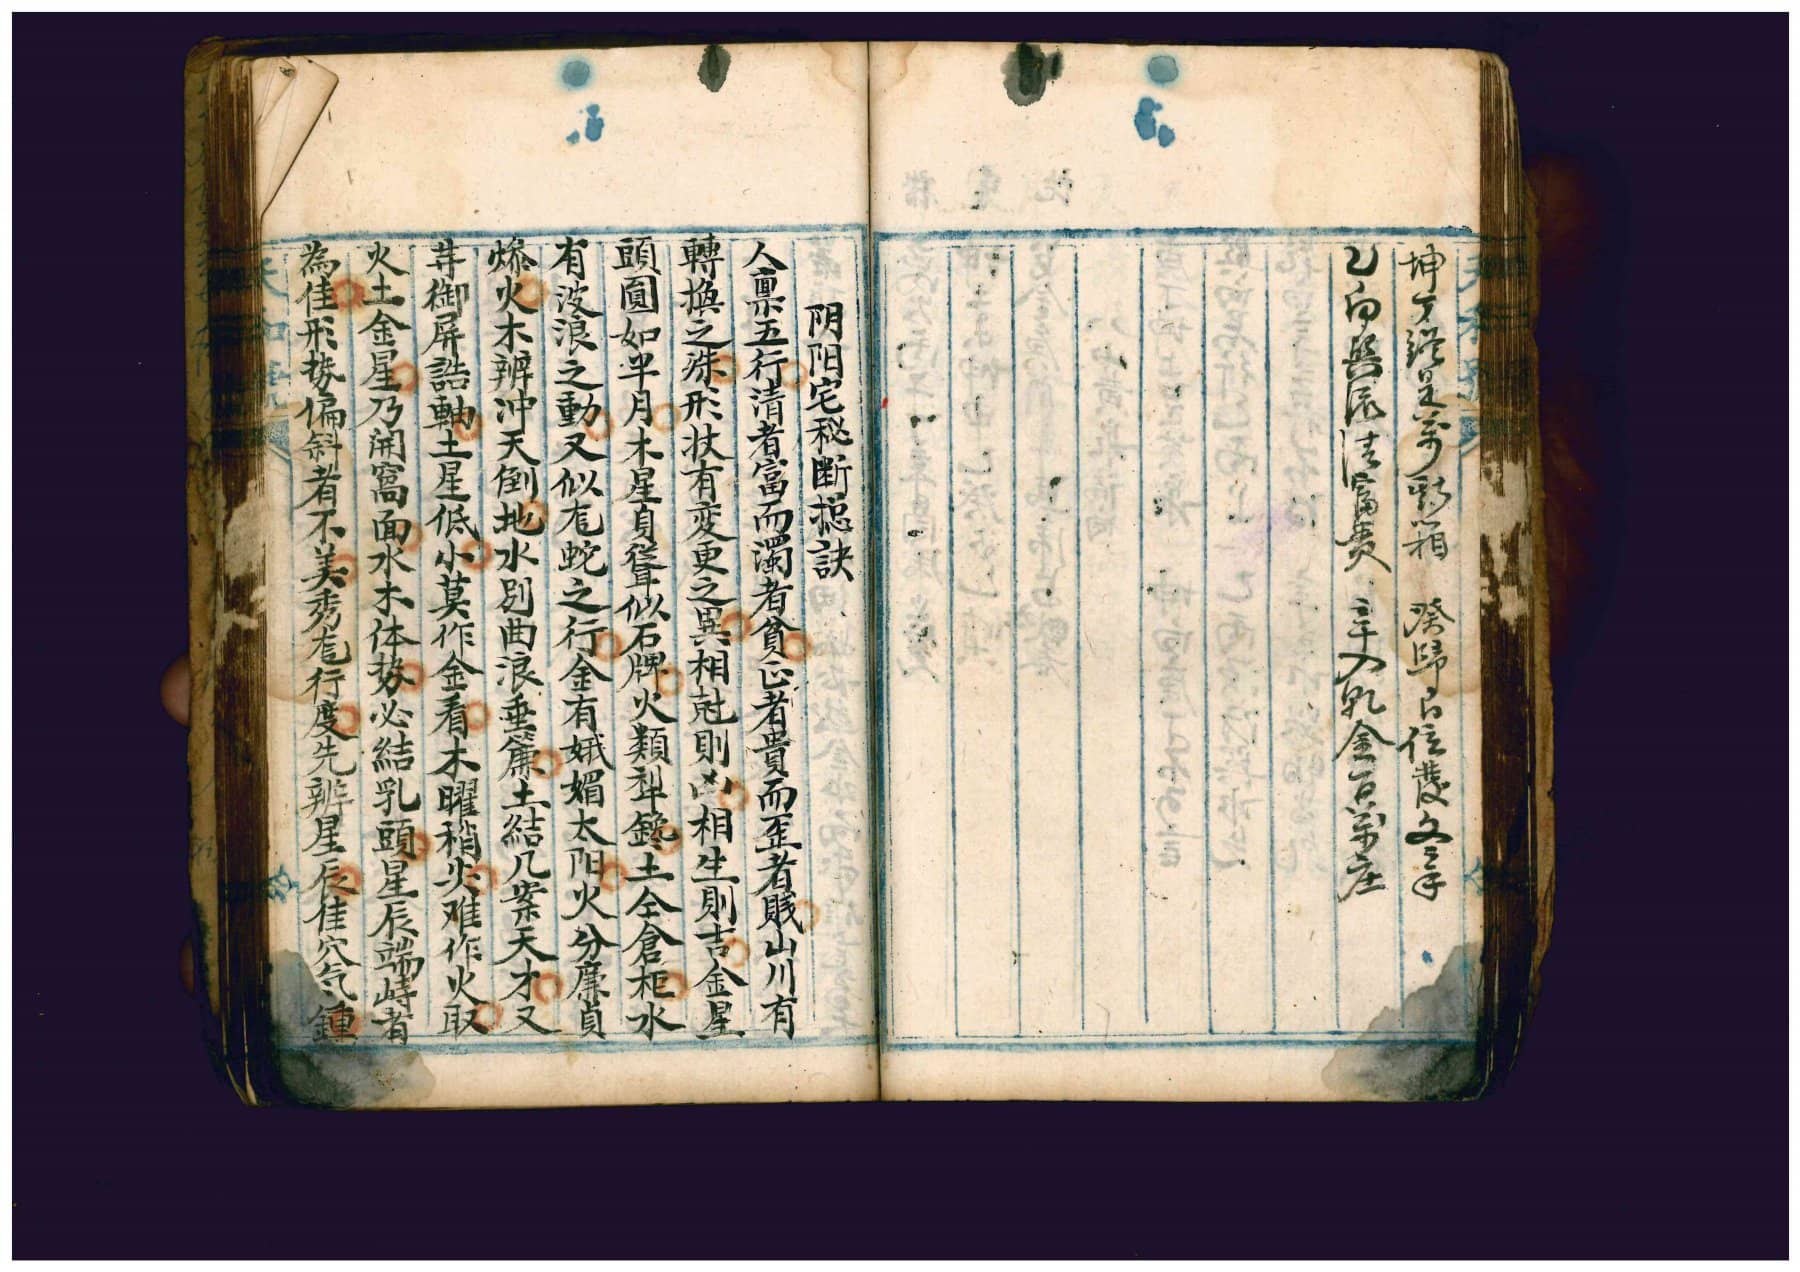 坤方鐙是萬斯箱　癸歸艮位發文章
乙向巽流清富貴　辛入乾金百萬庄
阴阳宅秘断捴訣
人禀五行清者富而濁者貧正者貴而歪者賎山川有
轉換之殊形状有変更之異相尅則凶相生則吉金星
頭圓如半月木星身聳似石牌火類犁鑱土仝倉柜水
有波浪之動又似虵蛇之行金有娥媚太阳火分廉貞
燎火木辨冲天倒地水别曲浪垂簾土結几案天才又
井御屏誥軸土星低小莫作金看木曜稍尖难作火取
火土金星乃開窩面水木体势必結乳頭星辰端峙者
為佳形势偏斜者不美秀龙行度先辨星辰佳穴气鍾